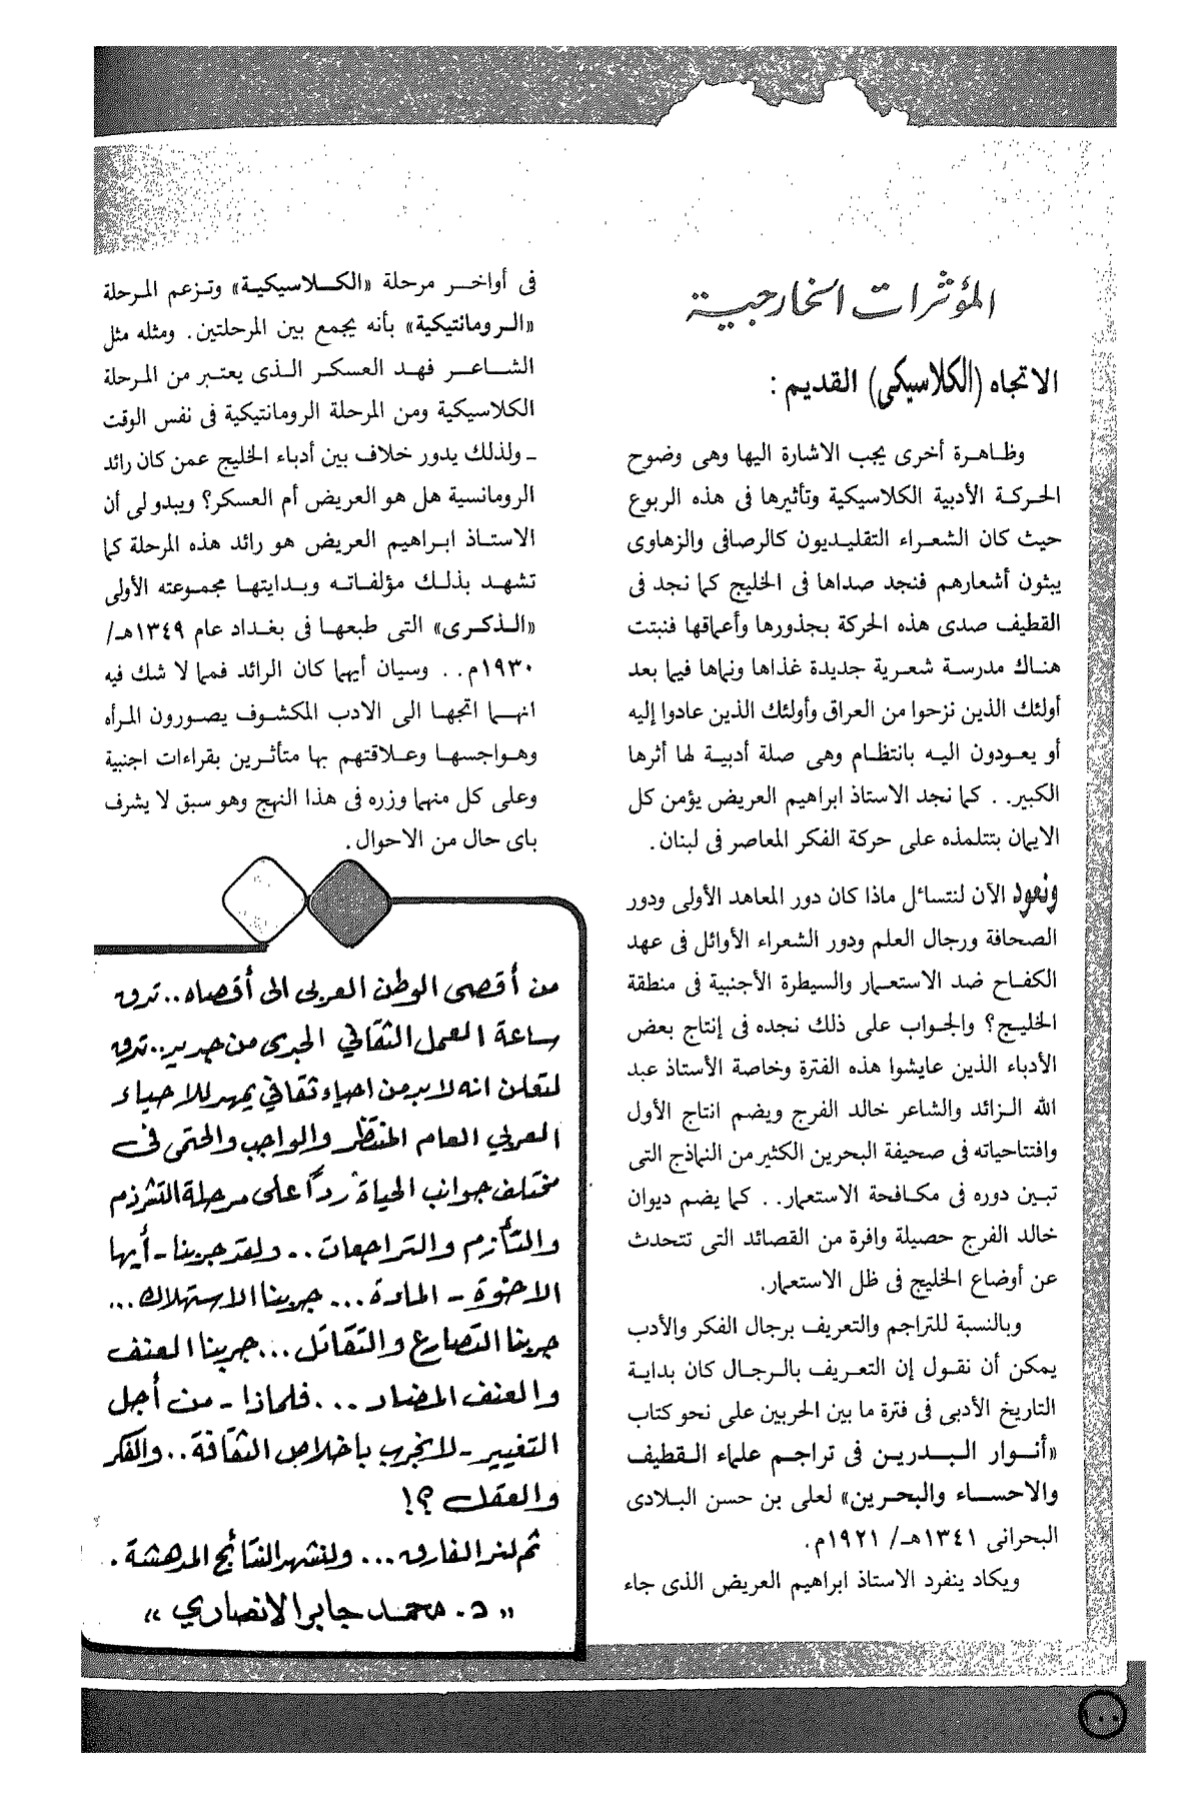 المؤثرات الخارجية
الاتجاه (الكلاسيكى) القديم :
وظـاهـرة أخرى يجب الاشارة اليها وهى وضوح
الحـركـة الأدبية الكلاسيكية وتأثيرها فى هذه الربوع
حيث كان الشعـراء التقليـديون كالرصافى والزهاوى
يبثون أشعارهم فنجد صداها فى الخليج كما نجد فى
القطيف صدى هذه الحركة بجذورها وأعماقها فنبتت
هنـاك مدرسـة شعـرية جديدة غذاها ونماها فيما بعد
أولئك الذين نزحوا من العراق وأولئك الذين عادوا إليه
أو يعـودون اليـه بانتظـام وهى صلة أدبيـة لها أثرها
الكبير. . كما نجد الاستاذ ابراهيم العريض يؤمن كل
الايمان بتتلمذه على حركة الفكر المعاصر فى لبنان .
ونعود الآن لنتساءل ماذا كان دور المعاهد الأولى ودور
الصحافة ورجال العلم ودور الشعراء الأوائل فى عهد
الكفـاح ضد الاستعـمار والسيطرة الأجنبية فى منطقة
الخليـج؟ والجـواب على ذلك نجده فى إنتاج بعض
الأدباء الذين عايشوا هذه الفترة وخاصة الأستاذ عبد
الله الـزائد والشاعر خالد الفرج ويضم انتاج الأول
وافتتاحياته فى صحيفة البحرين الكثير من النماذج التى
تبـين دوره فى مكـافحة الاستعمار. . كما يضم ديوان
خالد الفرج حصيلة وافرة من القصائد التى تتحدث
عن أوضاع الخليج فى ظل الاستعمار.
وبالنسبة للتراجم والتعريف برجال الفكر والأدب
يمكن أن نقـول إن التعـريف بالـرجـال كان بدايـة
التاريخ الأدبى فى فترة ما بين الحربين على نحو كتاب
«أنـــوار الـبـــدريــن فى تراجـم علماء الـقطيف
والاحســاء والبحـرين» لعلى بن حسن البـلادى
البحرانى ١٣٤١هـ/ ١٩٢١م .
ويكاد ينفرد الاستاذ ابراهيم العريض الذى جاء
فى أواخـر مرحلة «الكـلاسيكيـة» وتـزعم المـرحلة
«الـرومانتيكية» بأنه يجمع بين المرحلتين. ومثله مثل
الشـاعـر فهـد العسكـر الـذى يعتـبر من المـرحلة
الكلاسيكية ومن المرحلة الرومانتيكية فى نفس الوقت
ـ ولذلك يدور خلاف بين أدباء الخليج عمن كان رائد
الرومانسية هل هو العريض أم العسكر؟ ويبدو لى أن
الاستـاذ ابـراهيم العريض هو رائد هذه المرحلة كما
تشهـد بذلـك مؤلفـاتـه وبـدايتهـا مجمـوعته الأولى
«الـذكـرى» التى طبعهـا فى بغـداد عام ١٣٤٩هـ/
١٩٣٠م. . وسيان أيهما كان الرائد فمما لا شك فيه
انهـما اتجهـا الى الادب المكشـوف يصـورون المـرأه
وهـواجسهـا وعـلاقتهم بها متأثـرين بقراءات اجنبية
وعلى كل منهما وزره فى هذا النهج وهو سبق لا يشرف
باى حال من الاحوال .
من أقصى الوطن العربى الى أقصاه.. تدق
ساعة العمل الثقافي الجدى من جديد.. تدق
لتعلن انه لا بد من احياء ثقافي يمهد للاحياء
العربي العام المنتظر والواجب والحتمى فى
مختلف جوانب الحياة رداً على مرحلة التشرذم
والتأزم والتراجعات.. ولقد جربنا - أيها
الاخوة - المادة... جربنا الاستهلاك...
جربنا التصارع والتقاتل... جربنا العنف
والعنف المضاد... فلماذا - من أجل
التغيير - لا نجرب باخلاص الثقافة.. والفكر
والعقل ؟!
ثم لنر الفارق... ولنشهد النتائج المدهشة .
« د. محمد جابر الانصاري »
١٠٠